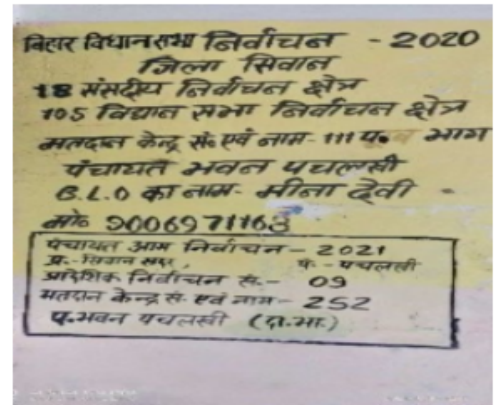 बिहार विधानसभा निर्वाचन - 2020
जिला सिवान
18 संसदीय निर्वाचन क्षेत्र
105 विधान सभा निर्वाचन क्षेत्र
मतदान केन्द्र सं० एवं नाम - 111 भाग
पंचायत भवन पचलखी
B.L.O का नाम - मीना देवी
मो० 9006971163
पंचायत आम निर्वाचन - 2021
प्र. - सिवान सदर, पं. - पचलखी
प्रादेशिक निर्वाचन सं. - 09
मतदान केन्द्र सं. एवं नाम - 252
पं.भवन पचलखी (द.भा.)